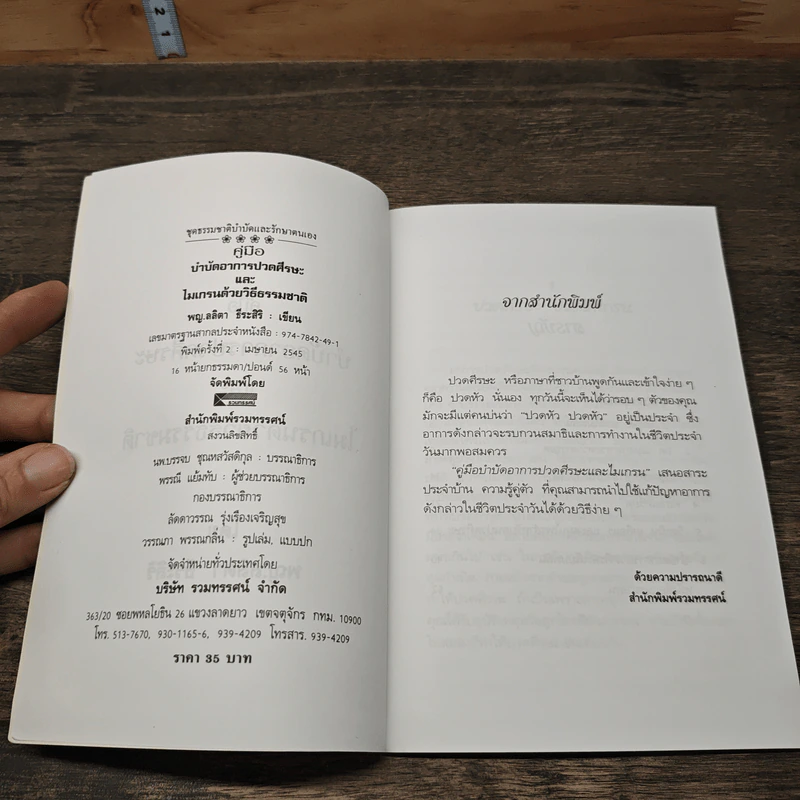 2 1
ชุดธรรมชาติบำบัดและรักษาตนเอง
คู่มือ
บำบัดอาการปวดศีรษะ
และ
ไมเกรนด้วยวิธีธรรมชาติ
พญ.ลลิตา ธีระสิริ : เขียน
เลขมาตรฐานสากลประจำหนังสือ : 974-7842-49-1
พิมพ์ครั้งที่ 2 : เมษายน 2545
16 หน้ายกธรรมดา/ปอนด์ 56 หน้า
จัดพิมพ์โดย
รวมทรรศน์
สำนักพิมพ์รวมทรรศน์
สงวนลิขสิทธิ์
นพ.บรรจบ ชุณหสวัสดิกุล : บรรณาธิการ
พรรณี แย้มทับ : ผู้ช่วยบรรณาธิการ
กองบรรณาธิการ
ลัดดาวรรณ รุ่งเรืองเจริญสุข
วรรณภา พรรณกลิ่น : รูปเล่ม, แบบปก
จัดจำหน่ายทั่วประเทศโดย
บริษัท รวมทรรศน์ จำกัด
363/20 ซอยพหลโยธิน 26 แขวงลาดยาว เขตจตุจักร กทม. 10900
โทร. 513-7670, 930-1165-6, 939-4209 โทรสาร. 939-4209
ราคา 35 บาท
จากสำนักพิมพ์
ปวดศีรษะ หรือภาษาที่ชาวบ้านพูดกันและเข้าใจง่าย ๆ
ก็คือ ปวดหัว นั่นเอง ทุกวันนี้จะเห็นได้ว่ารอบ ๆ ตัวของคุณ
มักจะมีแต่คนบ่นว่า "ปวดหัว ปวดหัว" อยู่เป็นประจำ ซึ่ง
อาการดังกล่าวจะรบกวนสมาธิและการทำงานในชีวิตประจำ
วันมากพอสมควร
"คู่มือบำบัดอาการปวดศีรษะและไมเกรน" เสนอสาระ
ประจำบ้าน ความรู้คู่ตัว ที่คุณสามารถนำไปใช้แก้ปัญหาอาการ
ดังกล่าวในชีวิตประจำวันได้ด้วยวิธีง่าย ๆ
ด้วยความปรารถนาดี
สำนักพิมพ์รวมทรรศน์